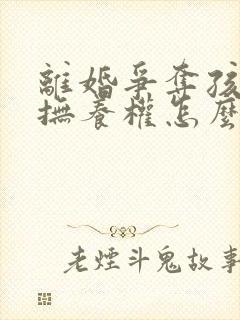 離婚爭奪孩
撫養權怎麼
老煙斗鬼故事